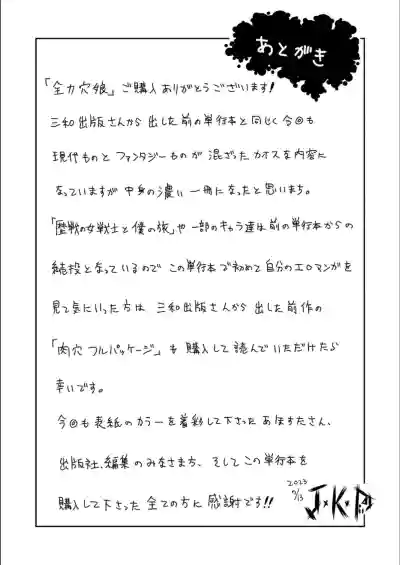 あとがき
「全力穴娘」ご購入ありがとうございます!
三和出版さんから出した前の単行本と同じく今回も
現代ものとファンタジーものが混ざったカオスな内容に
なっていますが中身の濃い一冊になったと思いまち。
「歴戦の女戦士と僕の旅」や一部のキャラ達は前の単行本からの
続投となっているのでこの単行本で初めて自分のエロマンガを
見て気にいった方は三和出版さんから出した前作の
「肉穴フルパッケージ」も購入して読んでいただけたら
幸いです。
今回も表紙のカラーを着彩して下さったあほすたさん、
出版社、編集のみなさまち、そしてこの単行本を
購入して下さった全ての方に感謝です!!
2023
9/13
J×K×P